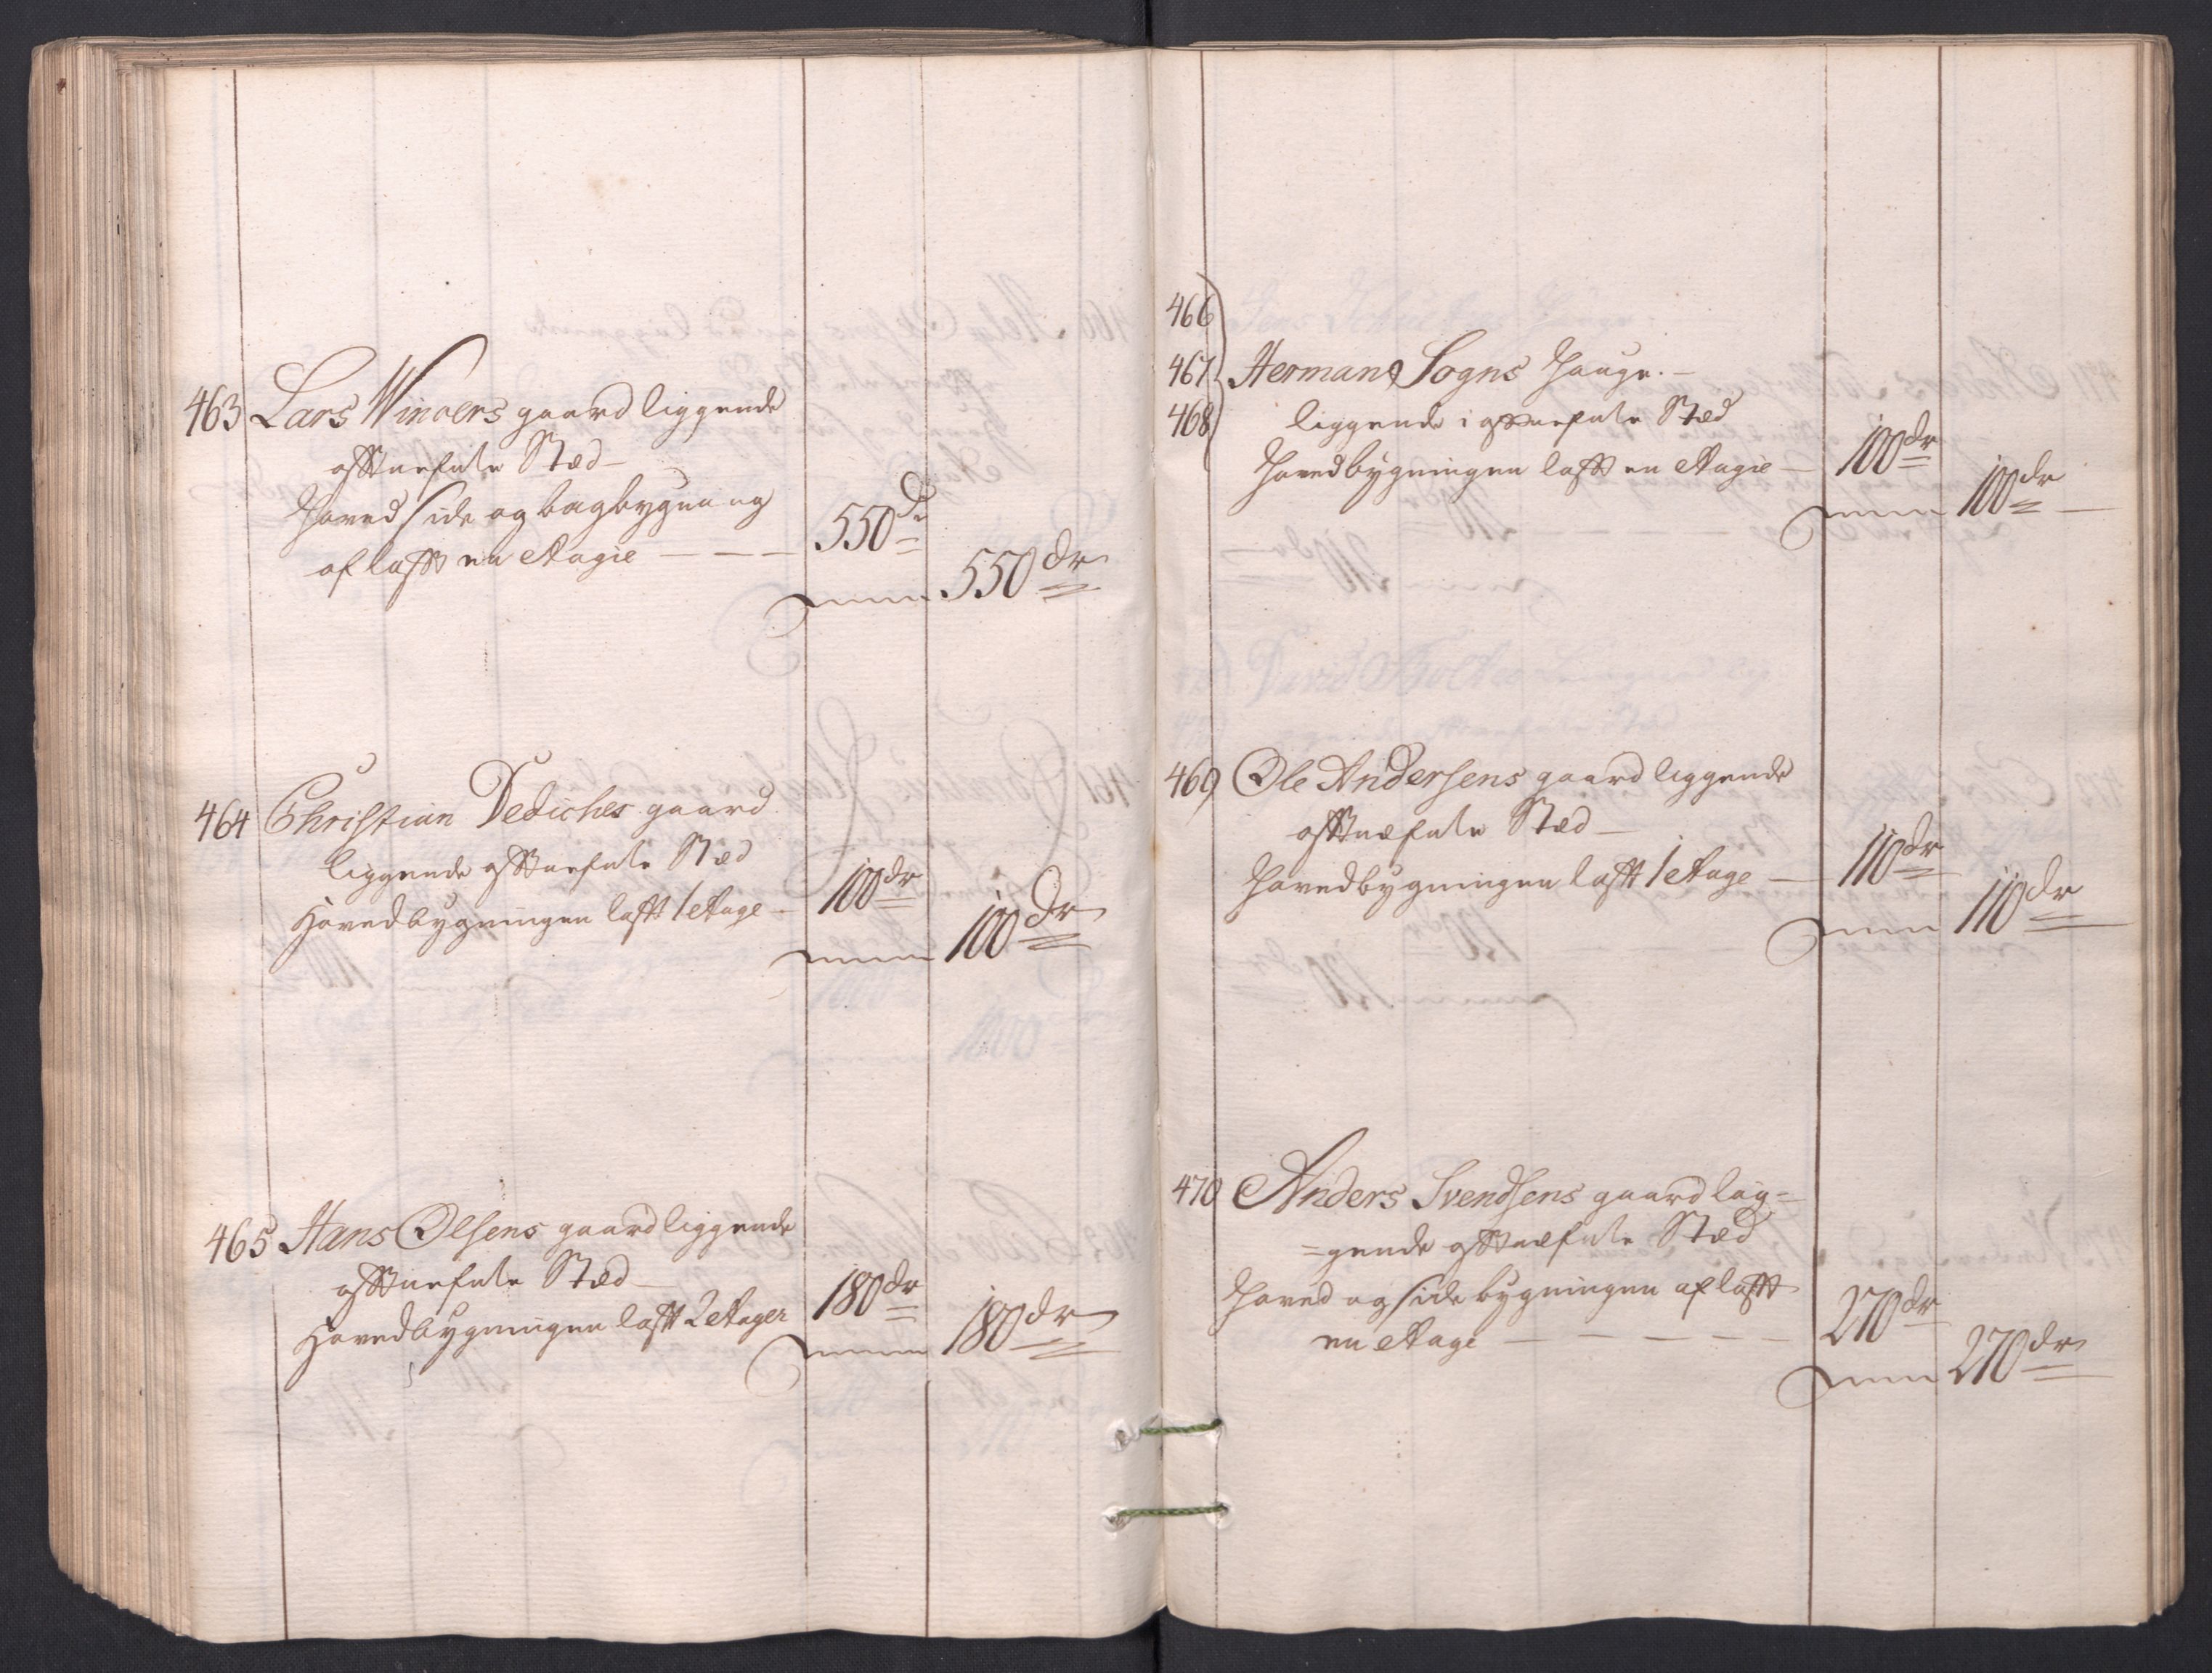 463 Lars Winders gaard liggende
oftnefnte Stæd
Hoved side og bagbygning
af laft en Etagie 550 dr
550 dr
464 Christian Dediches gaard
liggende oftnefnte Stæd
Hovedbygningen laft 1 Etage 100 dr
100 dr
465 Hans Olsens gaard liggende
oftnefnte Stæd
Hovedbygningen laft 2 Etager 180 dr
180 dr
466
467 Hermans Sogns Hauge.
468 liggende i oftnefnte Stæd
Hovedbygningen laft en Etagie 100 dr
100 dr
469 Ole Andersens gaard liggende
oftnæfnte Stæd
Hovedbygningen laft 1 Etage 110 dr
110 dr
470 Anders Svendsens gaard lig=
=gende oftnæfnte Stæd
Hoved og side bygningen af laft
en Etage 270 dr
270 dr